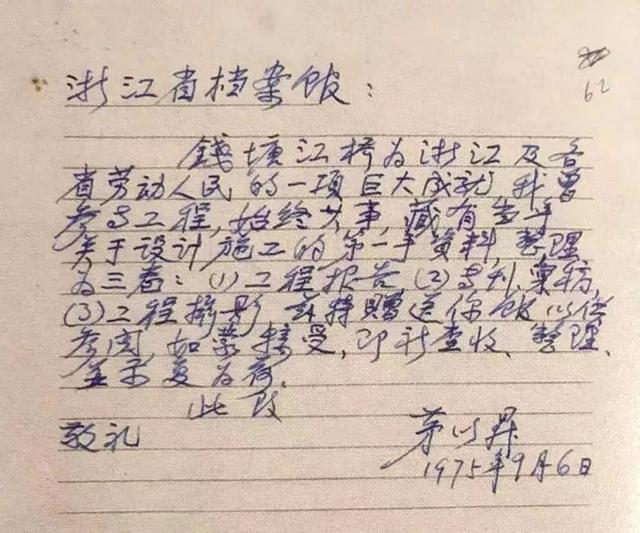 62
浙江省档案馆:
錢塘江桥为浙江及各
省劳动人民的一项巨大成就,我曾
参与工程,始终其事,藏有当年
关于设计施工的第一手資料,整理
为三套:(1)工程报告,(2)专刊、彙稿,
(3)工程摄影,兹特贈送你馆,以供
参阅,如蒙接受,即祈查收、整理、
并示复为荷.
此致
敬礼
茅以昇
1975年9月6日